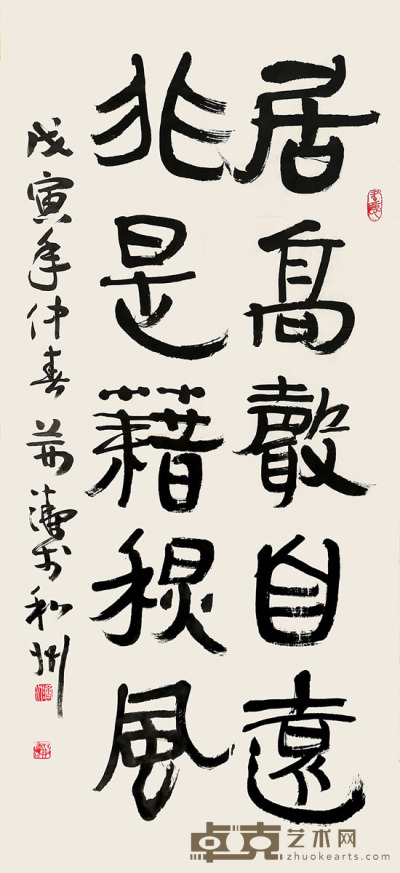 居高聲自遠
非是藉秋風
戊寅年仲春 濤於和州
卓克艺术网
zhuokearts.com